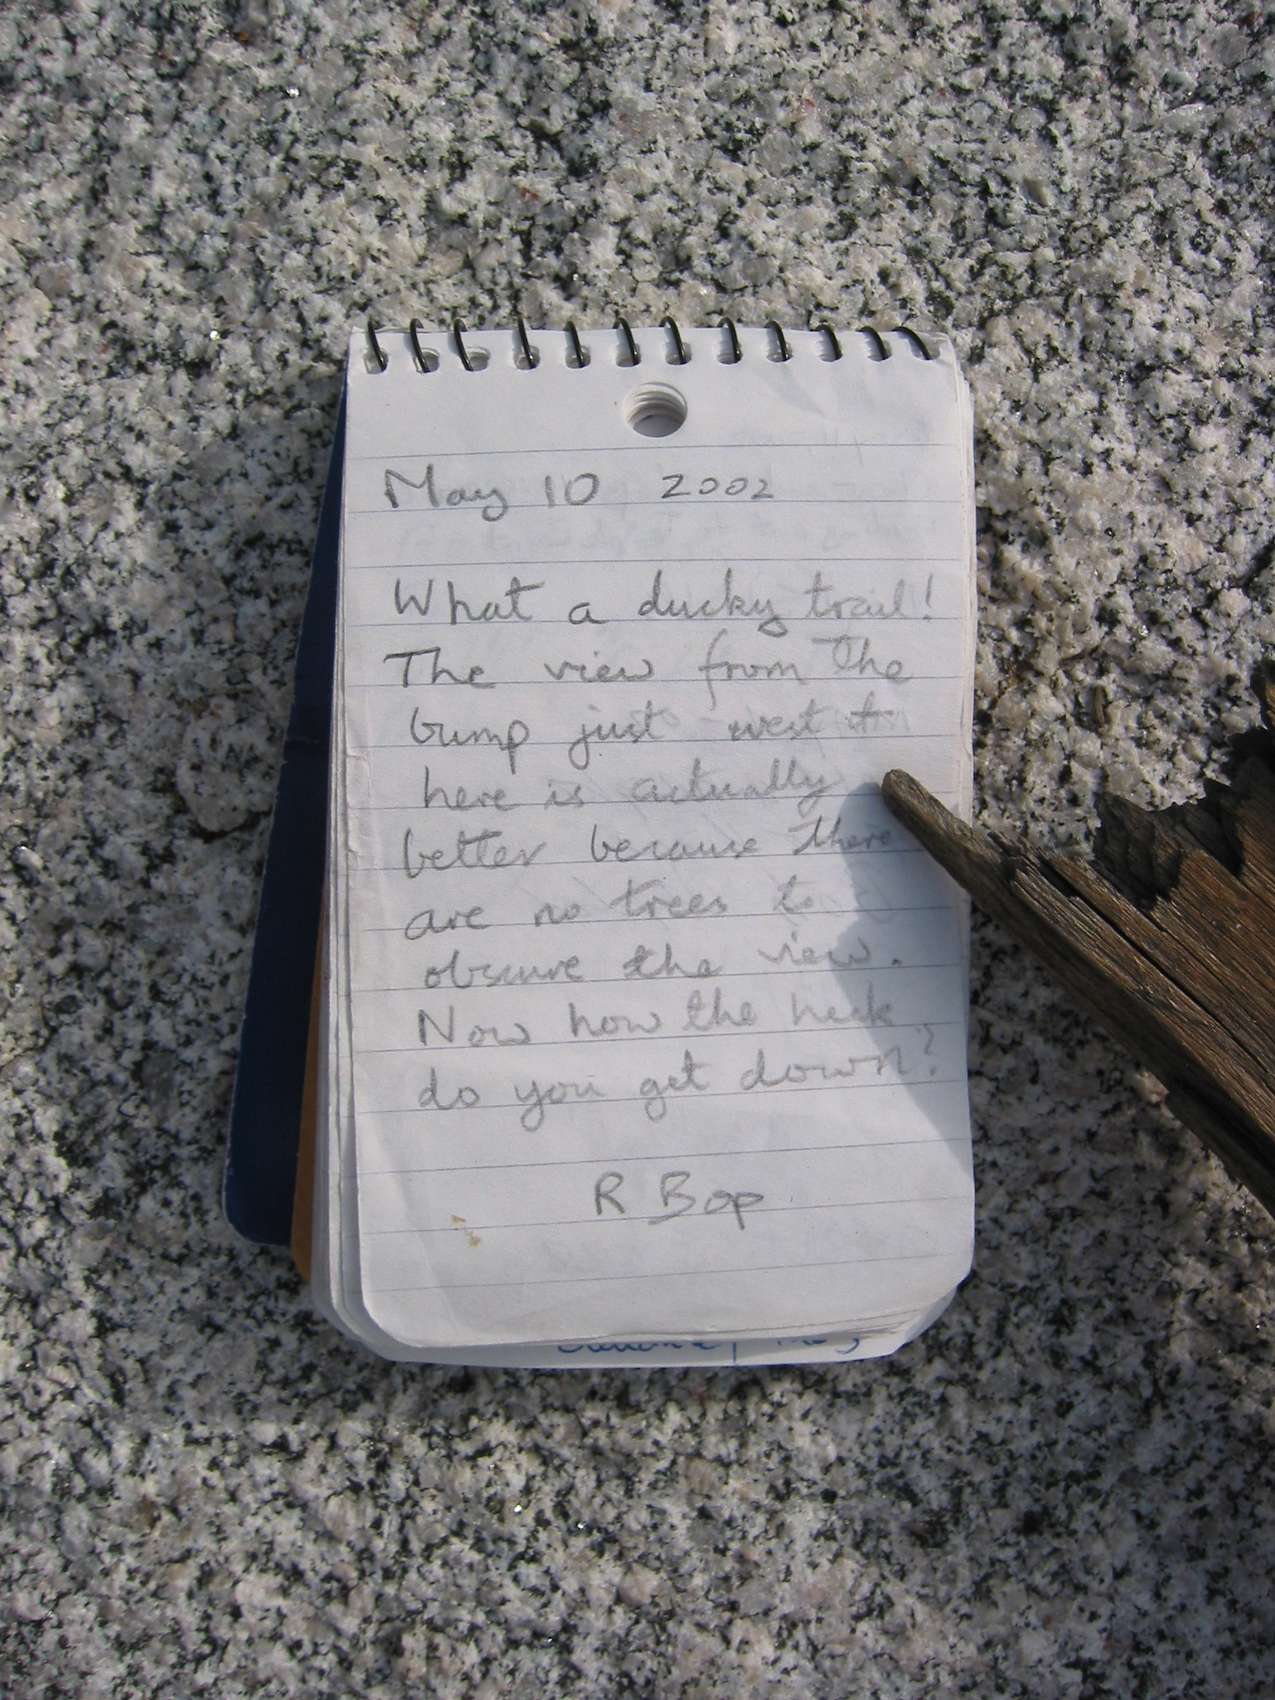 May 10 2002
What a ducky trail!
The view from the
bump just west to
here is actually
better because there
are no trees to
obscure the view.
Now how the heck
do you get down?
R Bop